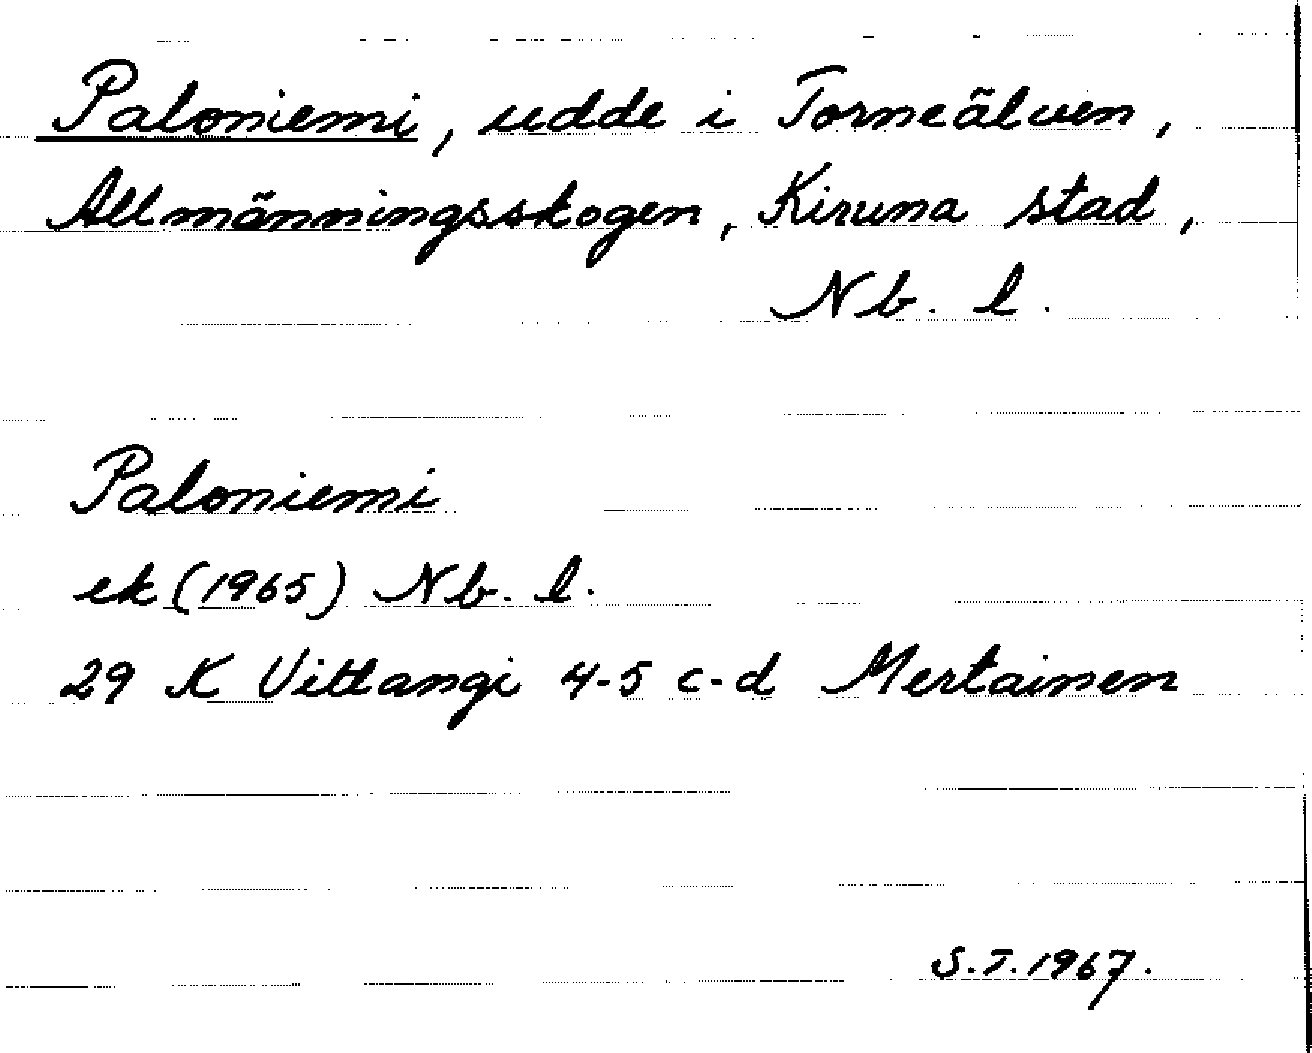 Paloniemi, udde i Torneälven,
Allmänningsskogen, Kiruna stad,
Nb. l.
Paloniemi
ek (1965) Nb. l.
29 K Vittangi 4-5 c-d Mertainen
S.T. 1967.